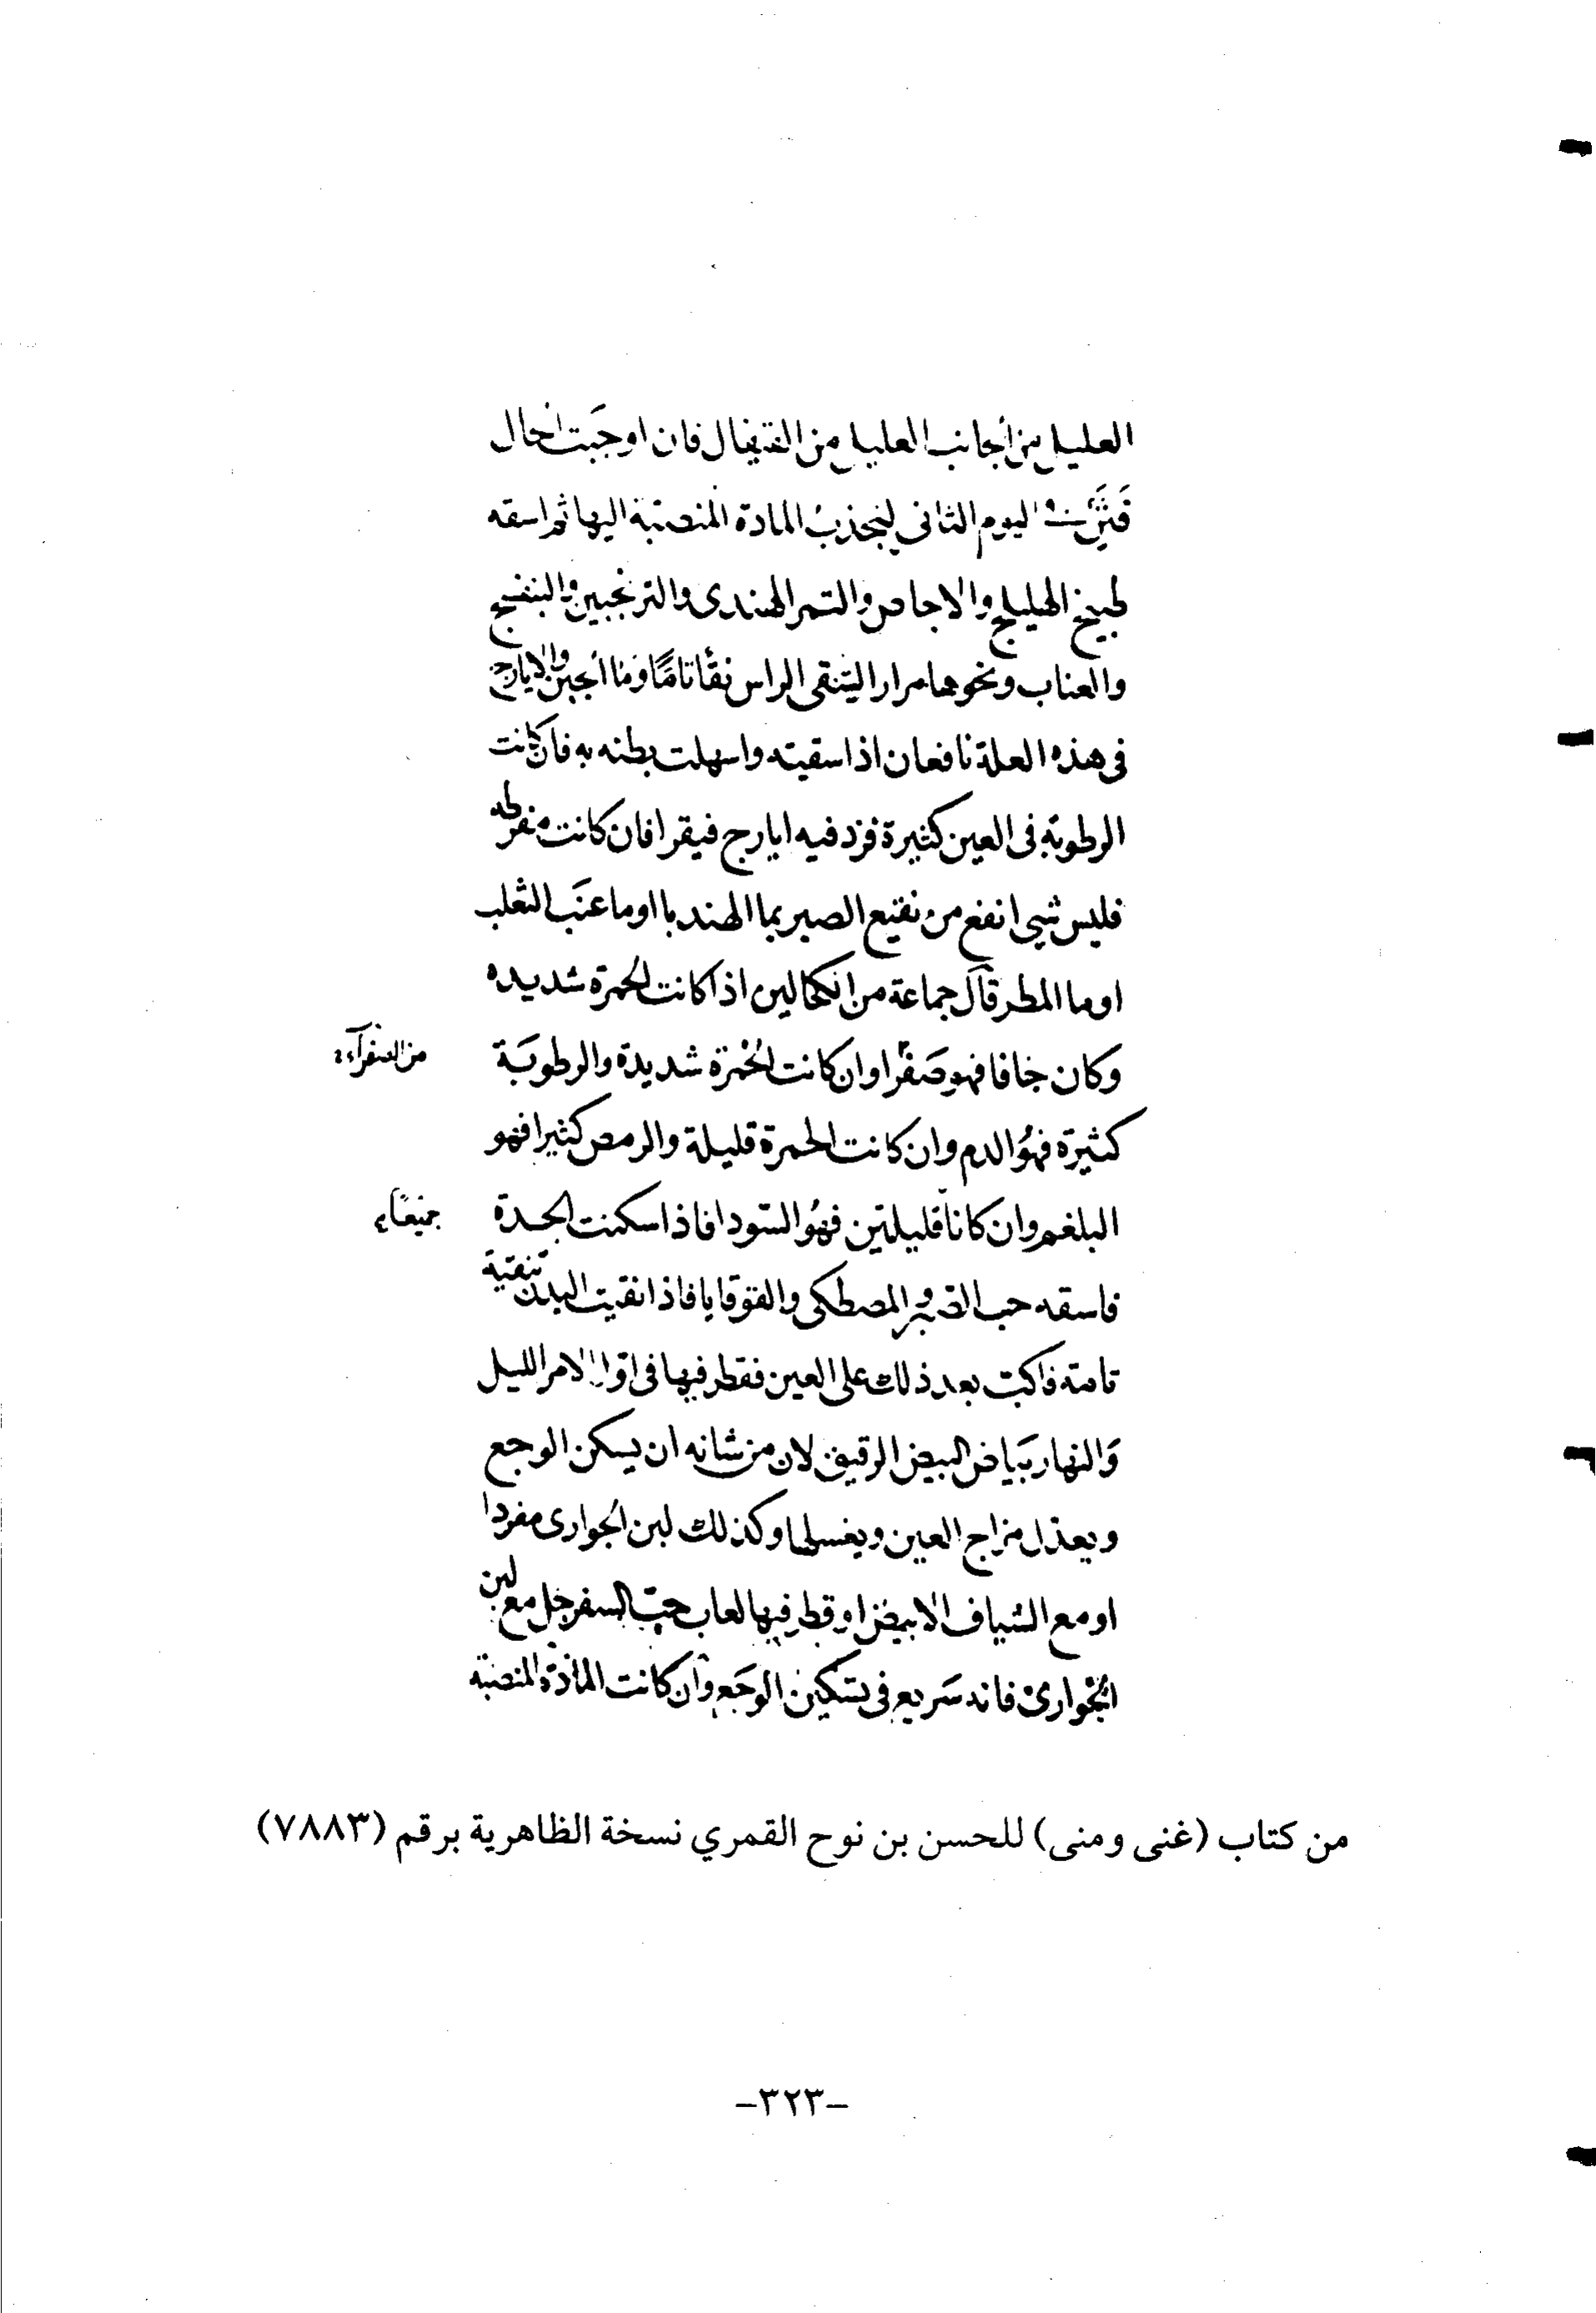 العليل من الجانب العليل من القيفال فان اوجبت الحال
فثن اليوم الثانى لينجذب المادة المنصبة اليها ثم اسقه
طبيخ الهليلج والاجاص والتمر الهندى والترنجبين والبنفسج
والعناب ونحوهما مرارا ليتنقى الراس نقاتامّا وما الجبن والايارج
فى هذه العلة نافعان اذا سقيته واسهلت بطنه به فان كانت
الرطوبة فى العين كثيرة فزد فيه ايارج فيقرا فان كانت مفرطه
فليس شيى انفع من نقيع الصبر بما الهندبا او ما عنب الثعلب
او ما المطر قال جماعة من الكحالين اذا كانت الحمرة شديده
وكان جافا فهو صفرا وان كانت الحمرة شديدة والرطوبة
من الصفرآء
كثيرة فهو الدم وان كانت الحمرة قليلة والرمص كثيرا فهو
البلغم وان كانا قليلتين فهو السّودا فاذا سكنت الحدة
جميعًا
فاسقه حب الصبر والمصطكى والقوقايا فاذا نقيت البدن تنقية
تامة فاكبّ بعد ذلك على العين فقطر فيها فى اول الامر الليل
والنهار بَياض البيض الرقيق لان من شانه ان يسكن الوجع
ويعدل مزاج العين ويغسلها وكذلك لبن الجوارى مفردا
او مع الشياف الابيض او قطر فيها لعاب حبّ السفرجل مع لبن
الجوارى فانه سَريع فى تسكين الوجَع وان كانت المادّة المنصبّة
من كتاب (غنى ومنى) للحسن بن نوح القمري نسخة الظاهرية برقم (٧٨٨٣)
-٣٢٣-